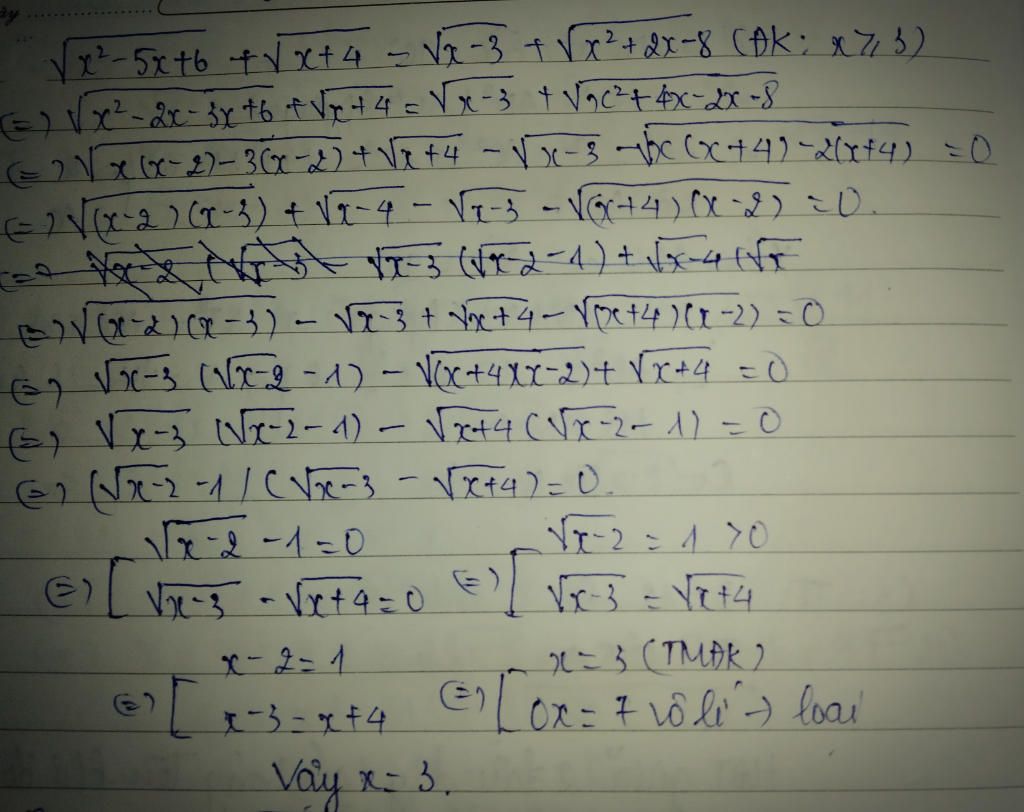 √(x²-5x+6) + √(x+4) = √(x-3) + √(x²+2x-8) (ĐK: x ≥ 3)
(=) √(x²-2x-3x+6) + √(x+4) = √(x-3) + √(x²+4x-2x-8)
(=) √(x(x-2)-3(x-2)) + √(x+4) - √(x-3) - √(x(x+4)-2(x+4)) = 0
(=) √((x-2)(x-3)) + √(x-4) - √(x-3) - √((x+4)(x-2)) = 0.
√(x-3) (√(x-2) -1) + √(x-4) (√x
(=) √((x-2)(x-3)) - √(x-3) + √(x+4) - √((x+4)(x-2)) = 0
(=) √(x-3) (√(x-2) -1) - √((x+4)(x-2)) + √(x+4) = 0
(=) √(x-3) (√(x-2) -1) - √(x+4) (√(x-2) -1) = 0
(=) (√(x-2) -1) (√(x-3) - √(x+4)) = 0.
(=) [ √(x-2) -1 = 0 (=) [ √(x-2) = 1 > 0
√(x-3) - √(x+4) = 0 √(x-3) = √(x+4)
(=) [ x-2 = 1 (=) [ x = 3 (TMĐK)
x-3 = x+4 0x = 7 vô lí → loại
Vậy x = 3.